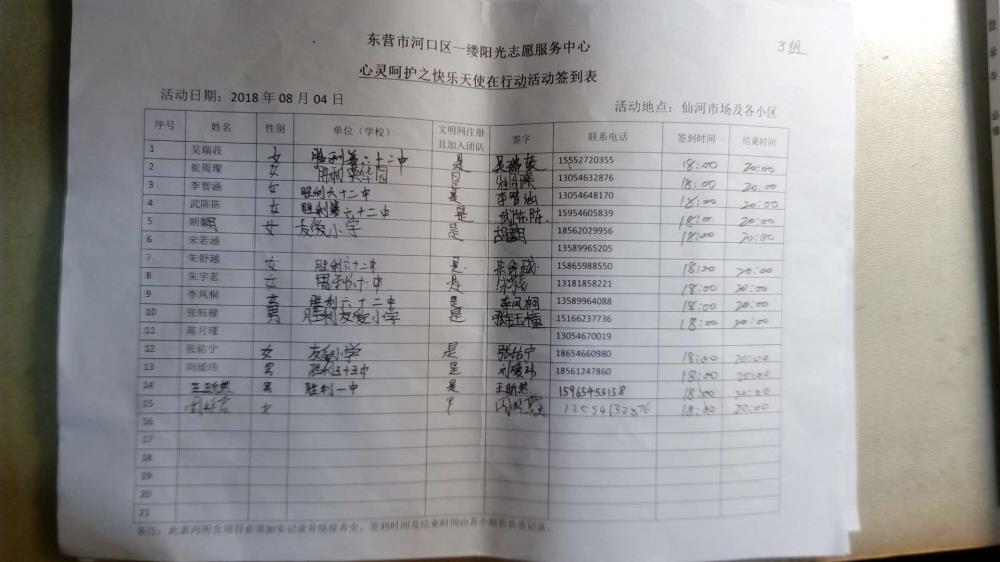 东营市河口区一缕阳光志愿服务中心
3组
心灵呵护之快乐天使在行动活动签到表
活动日期：2018 年 08 月 04 日 活动地点：仙河市场及各小区
序号 姓名 性别 单位（学校） 文明网注册且加入团队 签字 联系电话 签到时间 结束时间
1 吴瑞荍 女 胜利第六十二中 是 15552720355 18:00 20:00
2 崔周璨 女 13054632876 18:00 20:00
3 李智涵 女 胜利六十二中 是 李智涵 13054648170 18:00 20:00
4 武陈陈 女 胜利第六十二中 是 武陈陈 15954605839 18:00 20:00
5 女 友爱小学 是 18562029956 18:00 20:00
6 宋若涵 13589965205
7 朱舒越 女 胜利六十二中 是 朱舒越 15865988550 18:00 20:00
8 朱宇茗 女 是 13181858221 18:00 20:00
9 李凤桐 男 胜利六十二中 是 李凤桐 13589964088 18:00 20:00
10 张钰橦 男 胜利友爱小学 是 张钰橦 15166237736 18:00 20:00
11 蒋月瑾 13054670019
12 张佑宁 女 友爱小学 是 张佑宁 18654660980 18:00 20:00
13 刘瑷玮 男 胜利五十三中 是 18561247860 18:00 20:00
14 王昕然 男 胜利一中 是 王昕然 15965455158 18:00 20:00
15 女 18:00 20:00
16
17
18
19
20
21
备注：此表内所含项目必须如实记录并填报齐全，签到时间及结束时间由各小组组长负责记录。